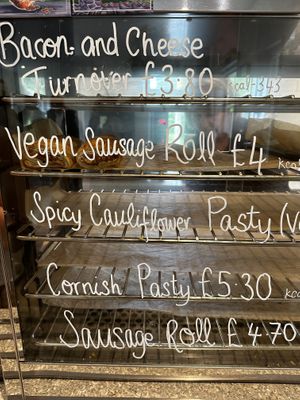 Bacon and Cheese
Turnover £3.80 kcal 343
Vegan Sausage Roll £4 kca
Spicy Cauliflower Pasty (V
Cornish Pasty £5.30 kca
Sausage Roll £4.70